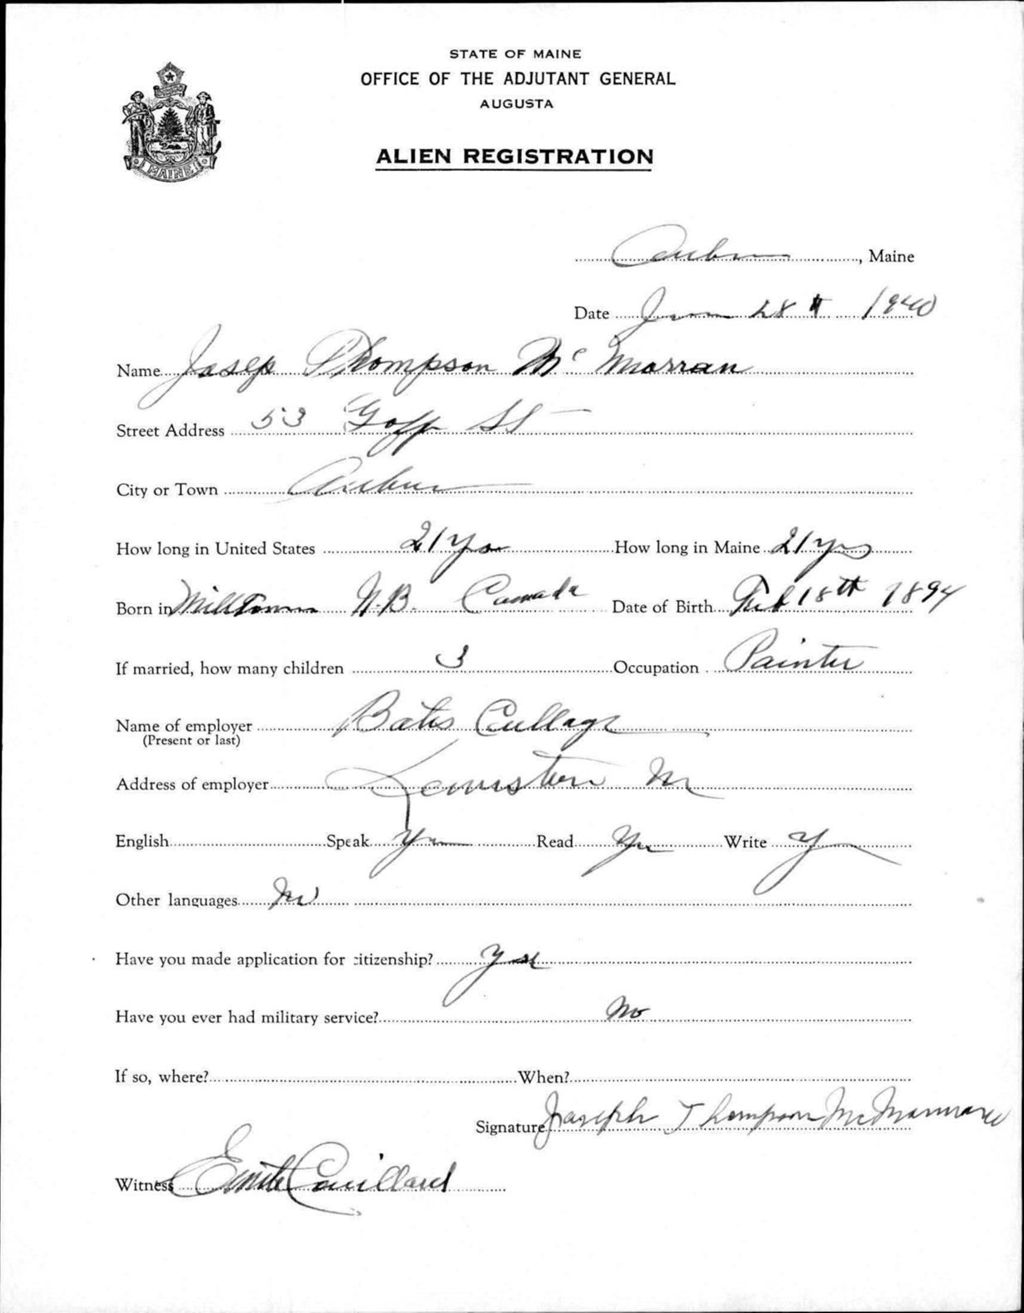 STATE OF MAINE
OFFICE OF THE ADJUTANT GENERAL
AUGUSTA
ALIEN REGISTRATION
MAINE
Auburn, Maine
Date June 28th 1940
Name Josep Thompson Mc Morran
Street Address 53 Goff St
City or Town Auburn
How long in United States 21 yrs How long in Maine 21 yrs
Born in Milltown N.B. Canada Date of Birth Feb 18th 1894
If married, how many children 3 Occupation Painter
Name of employer Bates College
(Present or last)
Address of employer Lewiston M
English Speak Yes Read Yes Write Y
Other languages No
Have you made application for citizenship? Yes
Have you ever had military service? No
If so, where? When?
Signature Joseph Thompson
Witness Emile Couillard